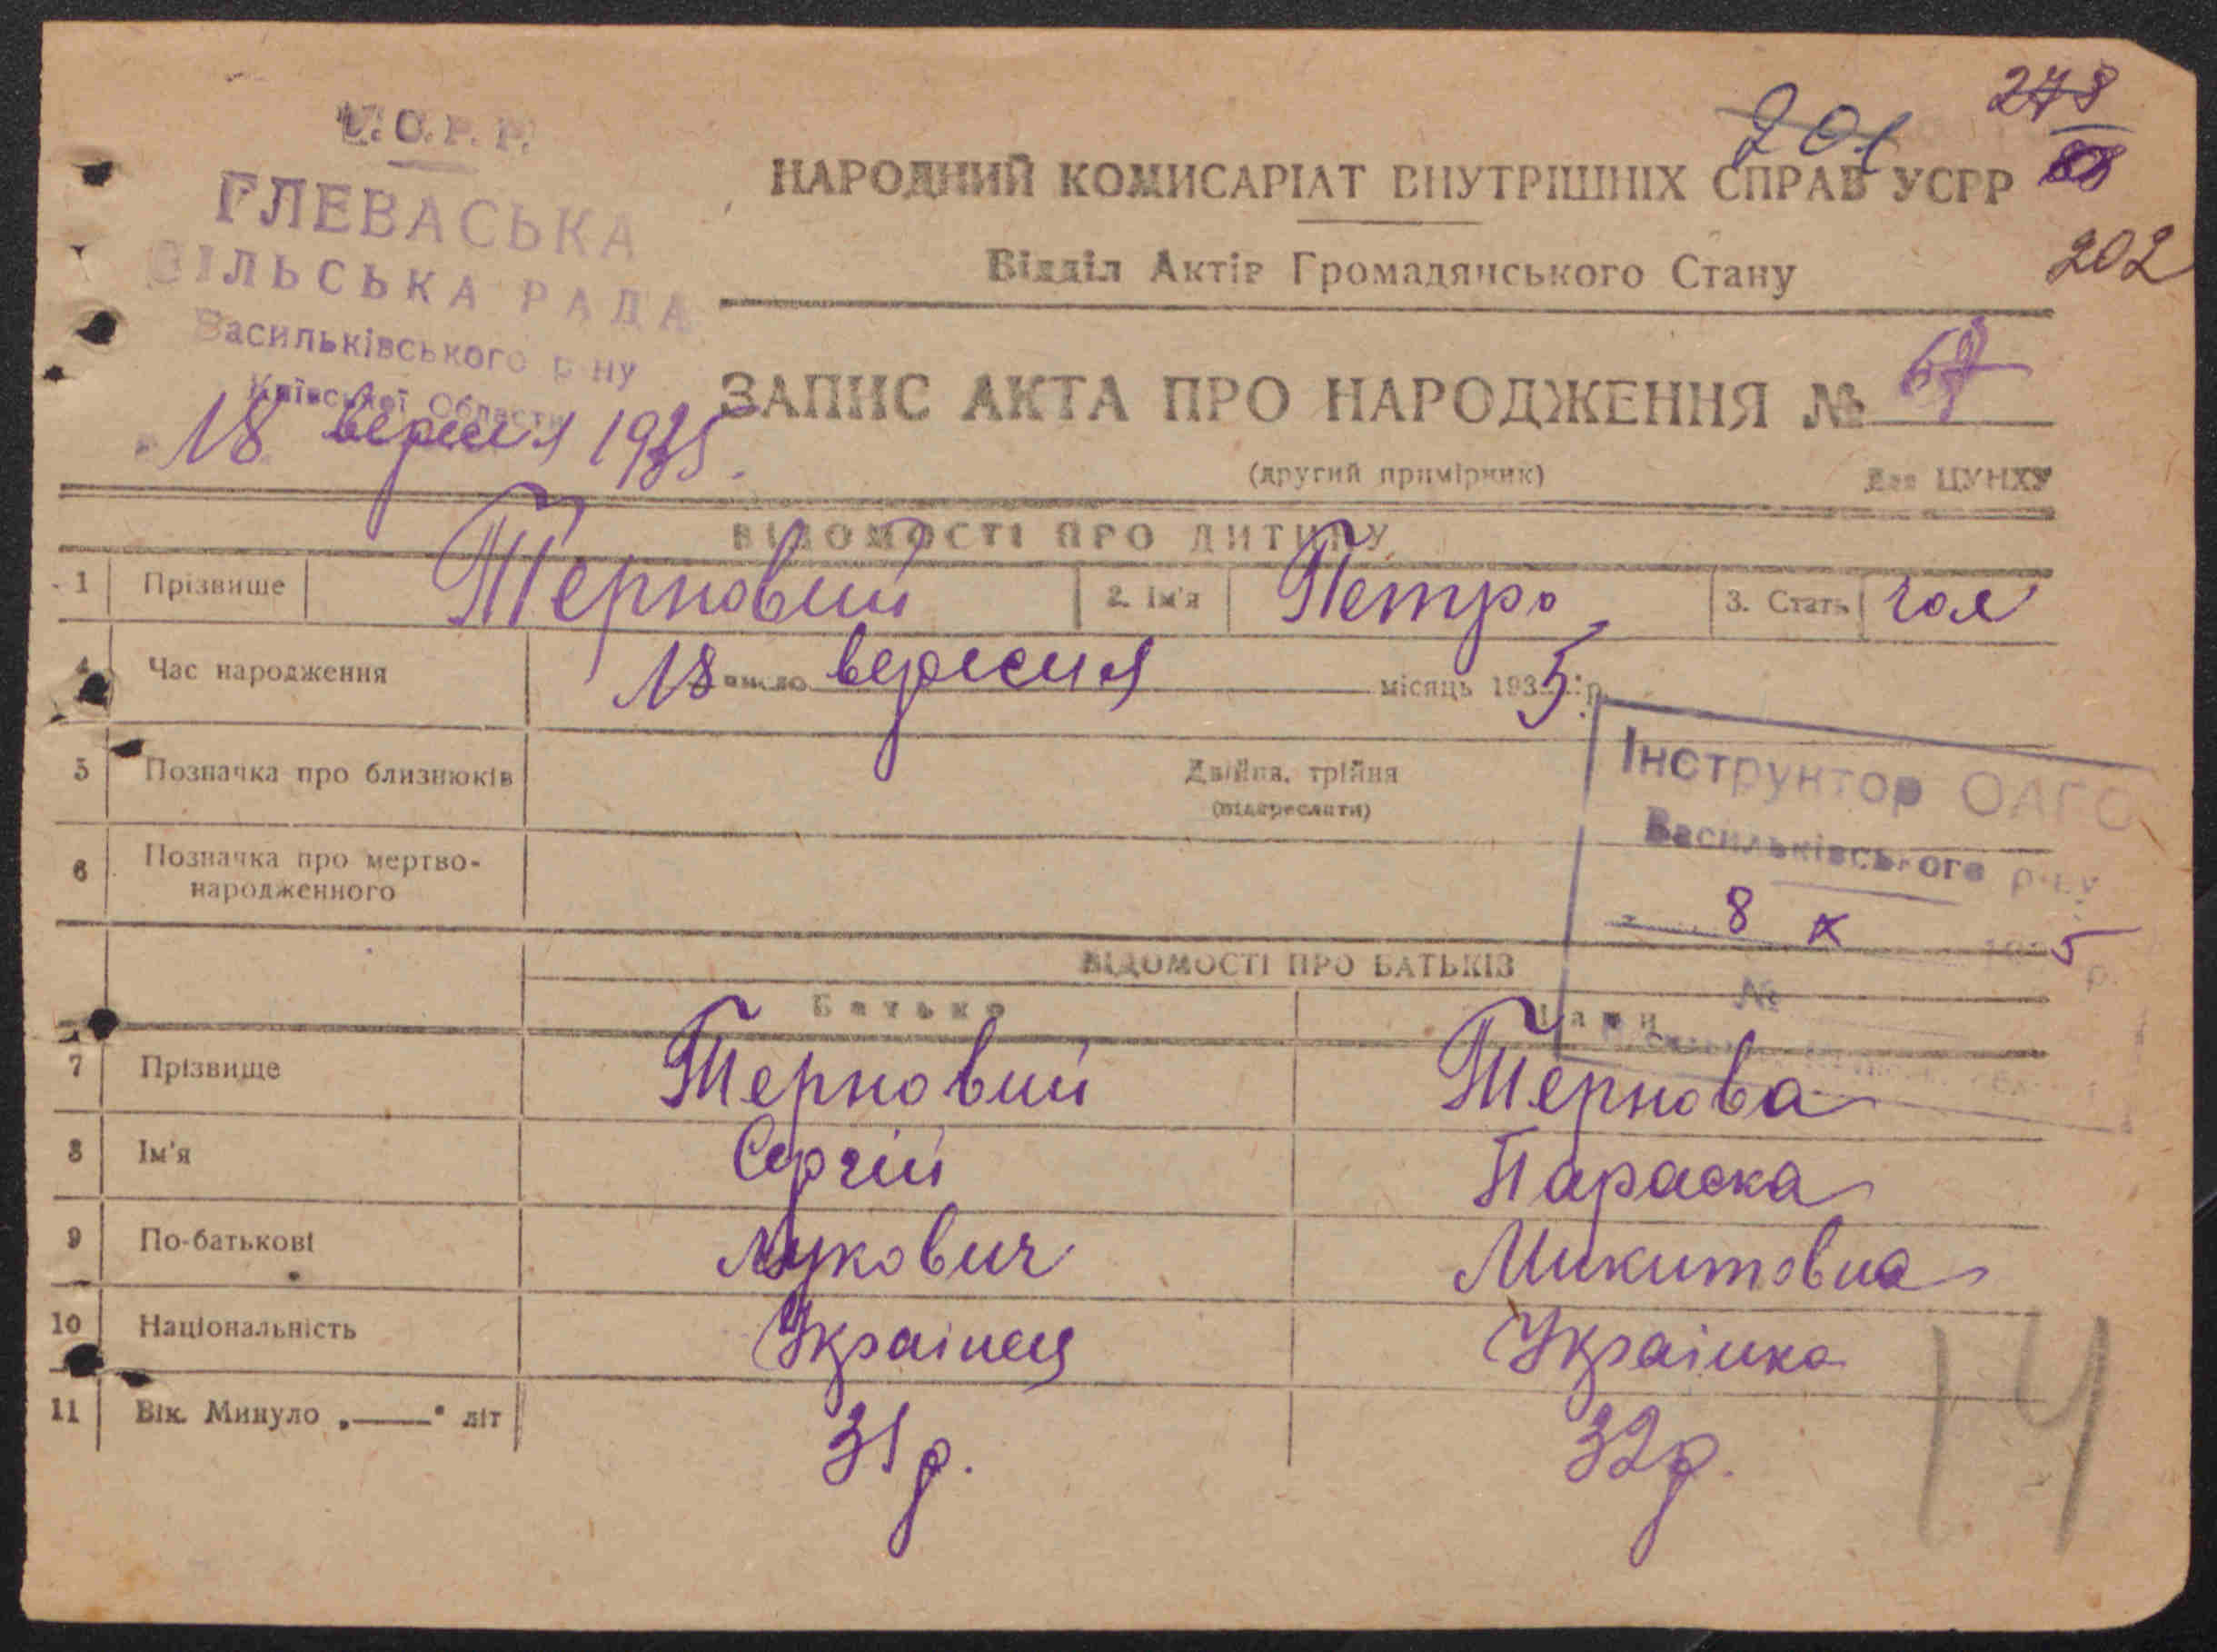 У.С.Р.Р.
ГЛЕВАСЬКА
СІЛЬСЬКА РАДА
Васильківського р-ну
Київської Области
18 вересня 1935
201
278
202
НАРОДНИЙ КОМИСАРІАТ ВНУТРІШНІХ СПРАВ УСРР
Відділ Актів Громадянського Стану
ЗАПИС АКТА ПРО НАРОДЖЕННЯ №
(другий примірник) Для ЦУНХУ
ВІДОМОСТІ ПРО ДИТИНУ
1 Прізвище Терновий 2. Ім'я Петро 3. Стать чол
4 Час народження 18 число вересня місяць 1935 р.
5 Позначка про близнюків Двійня, трійня
(підкреслити)
6 Позначка про мертво-
народженного
Інструктор ОАГС
Васильківського р-ну
8 X 1935 р.
№
ВІДОМОСТІ ПРО БАТЬКІВ
Батько Мати
7 Прізвище Терновий Тернова
8 Ім'я Сергій Параска
9 По-батькові Лукович Микитовна
10 Національність Українец Українка
11 Вік. Минуло „——“ літ 31 р. 32 р.
14